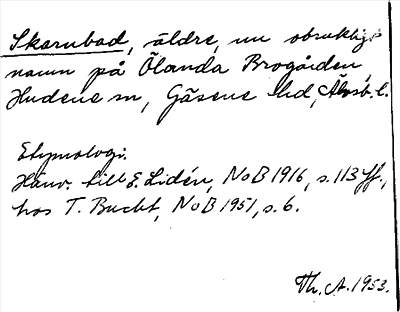 Skarnbad, äldre, nu obrukligt
namn på Ölanda Brogården
Hudene sn, Gäsene hd, Älvsb. l.
Etymologi.
Hänv. till E. Lidén, NoB 1916, s. 113 ff.,
hos T. Bucht, NoB 1951, s. 6.
Th. A. 1953.